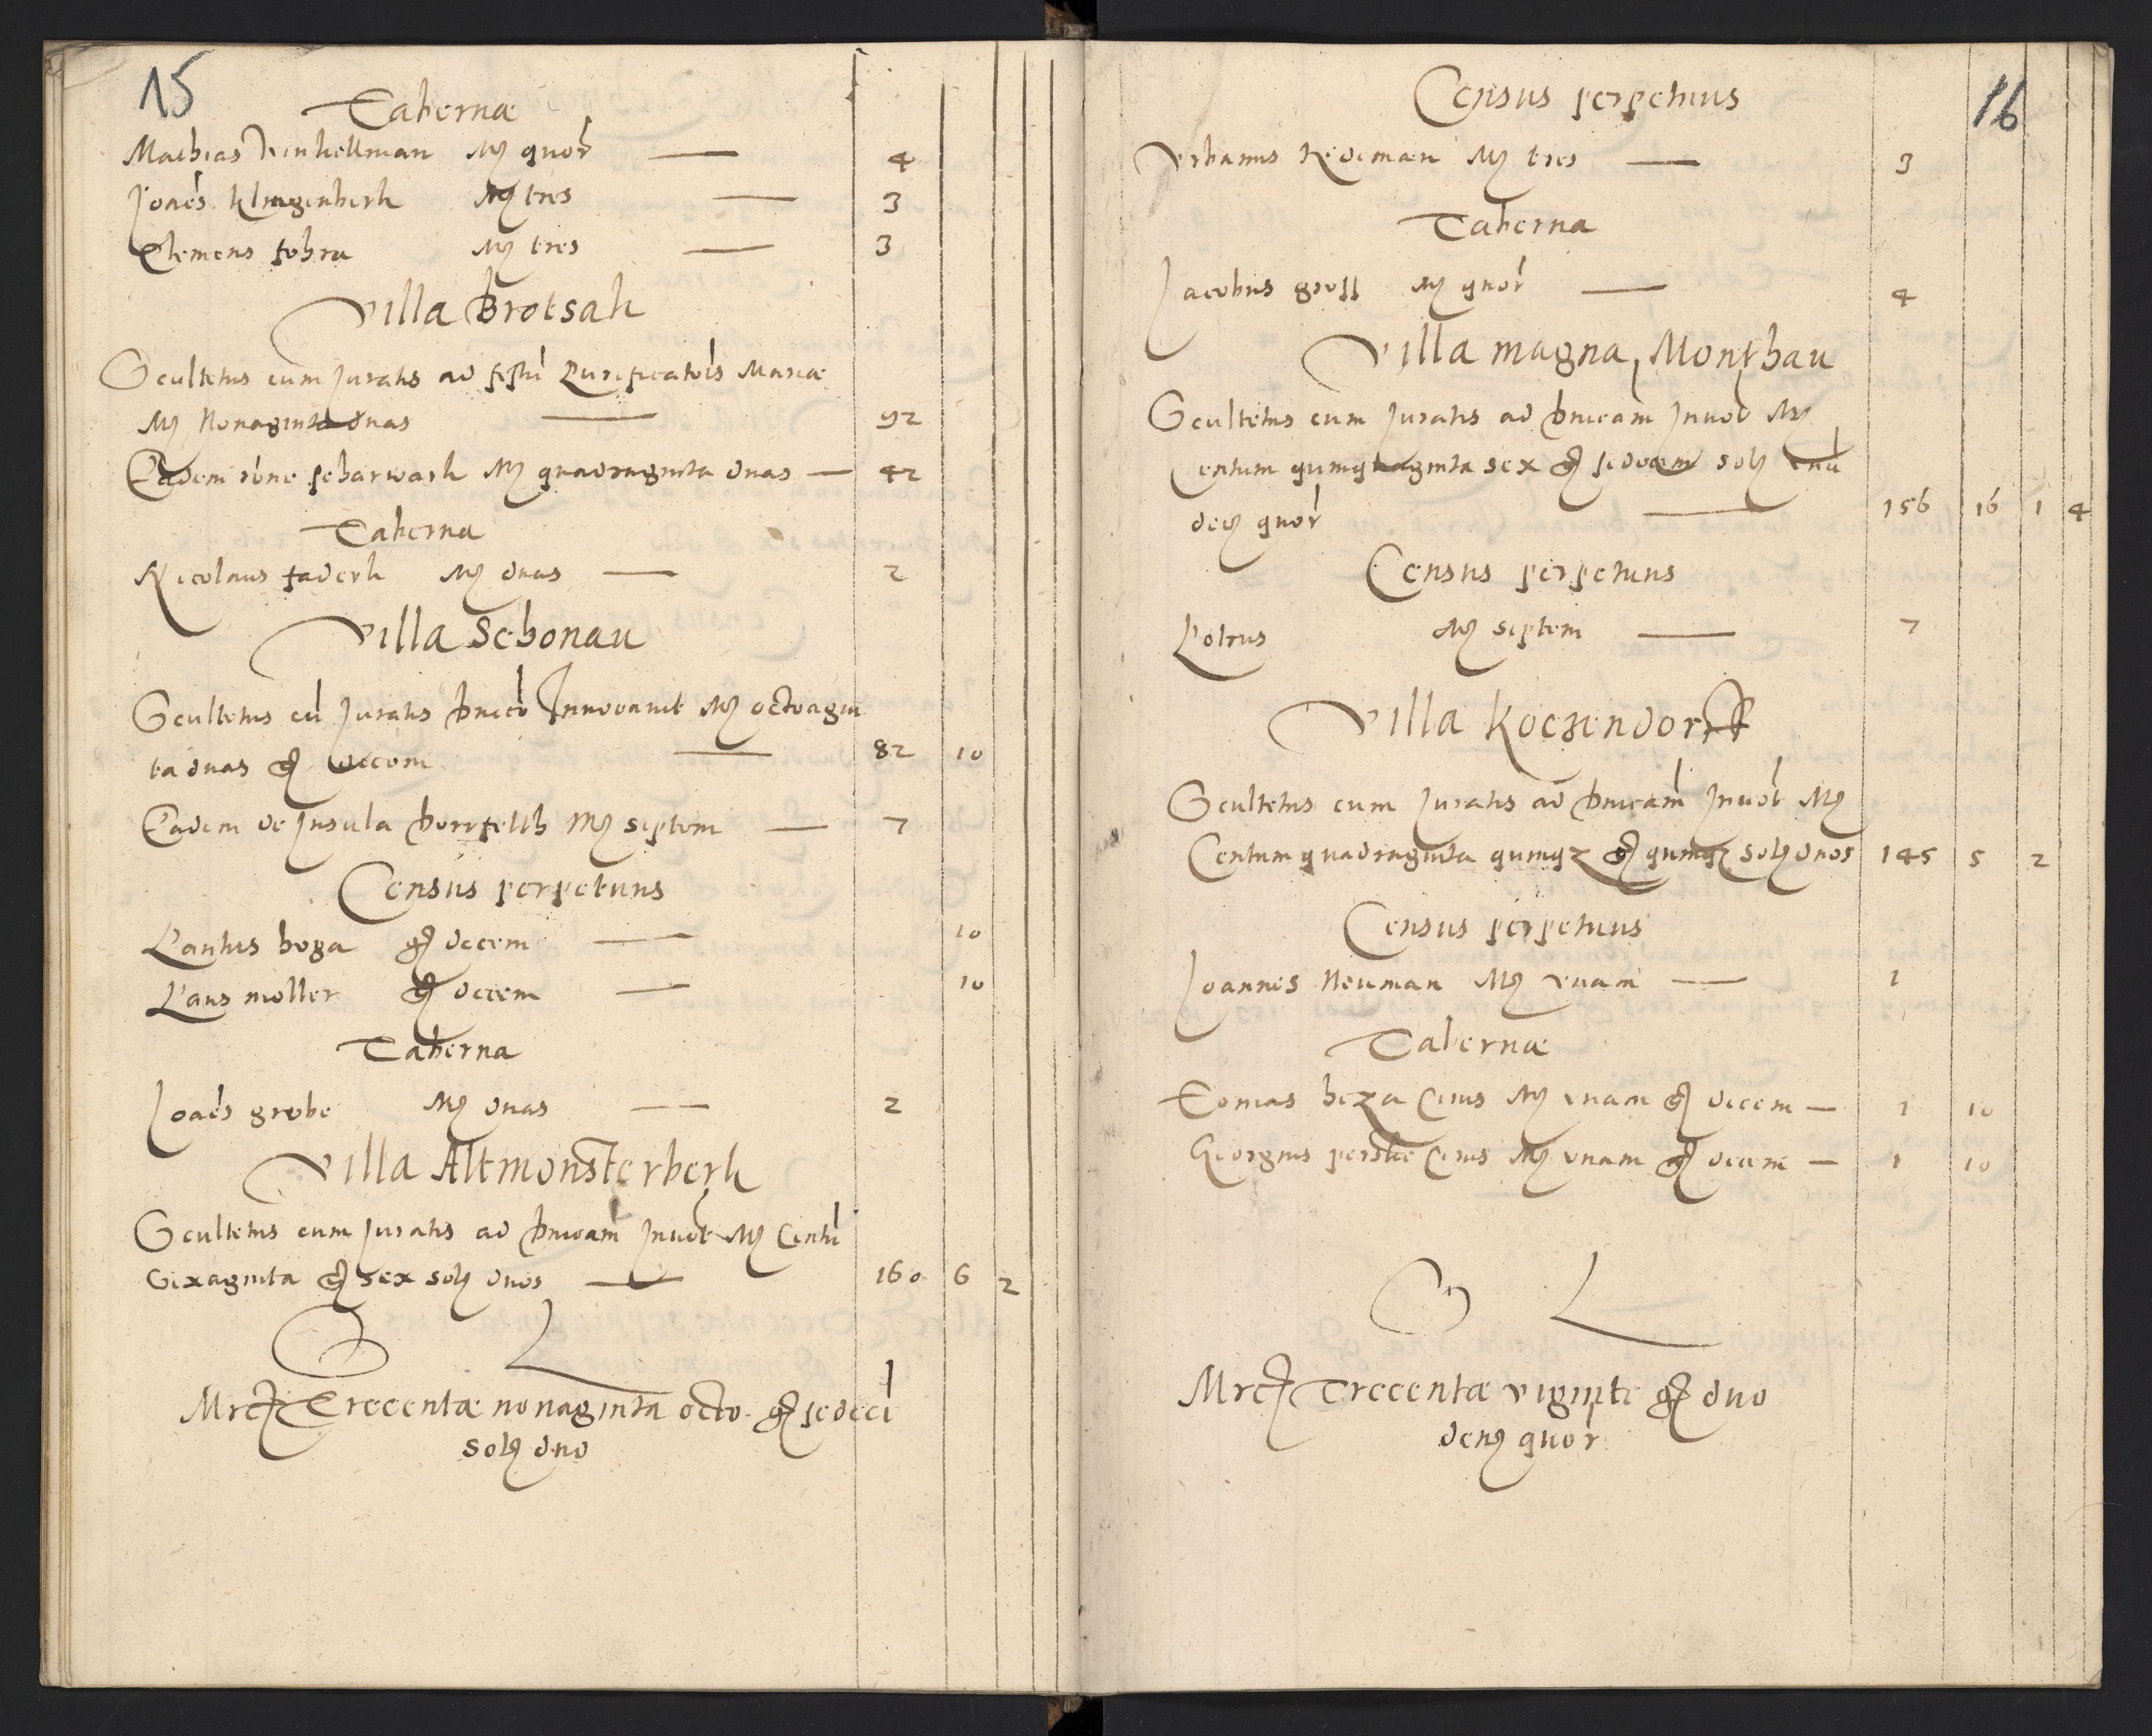 15
Tabernæ
Mathias Winkellman Mẜ quor — 4
Joães Klingenberk Mẜ tres — 3
Clemens fohra Mẜ tres — 3
Villa Brotsak
Scultetus cum Juratis ad festũ Purificatõis Mariæ
Mẜ Nonaginta duas — 92
Eadem rõne scharwark Mẜ quadraginta duas — 42
Taberna
Nicolaus faderk Mẜ duas — 2
Villa Schonau
Scultetus cũ Juratis Innovavit Mẜ octoagin
ta duas gẜ decem — 82 10
Eadem de Insula hornfelth Mẜ septem — 7
Census perpetuus
Paulus boga gẜ decem — 10
Paus moller gẜ decem — 10
Taberna
Joães grobe Mẜ duas — 2
Villa Altmonsterberk
Scultetus cum Juratis ad Mẜ Centũ
Sexaginta gẜ sex solẜ duos — 160 6 2
S L
Mrcẜ Trecentæ nonaginta octo gẜ sedecĩ
solẜ duo
16
Census perpetuus
Urbanus Redeman Mẜ tres — 3
Taberna
Jacobus gross Mẜ quor — 4
Villa magna Monthau
Scultetus cum Juratis ad Mẜ
Centum quinquaginta sex gẜ sedecem solẜ unũ
deẜ quor — 156 16 1 4
Census perpetuus
Petrus Mẜ septem — 7
Villa Koczendorff
Scultetus cum Juratis ad Mẜ
Centum quadraginta quinqz gẜ quinqz solẜ duos 145 5 2
Census perpetuus
Joannes Neuman Mẜ unam — 1
Tabernæ
Tomas beza Mẜ unam gẜ decem — 1 10
Georgius Mẜ unam gẜ decem — 1 10
S L
Mrcẜ Trecentæ viginte gẜ duo
denẜ quor